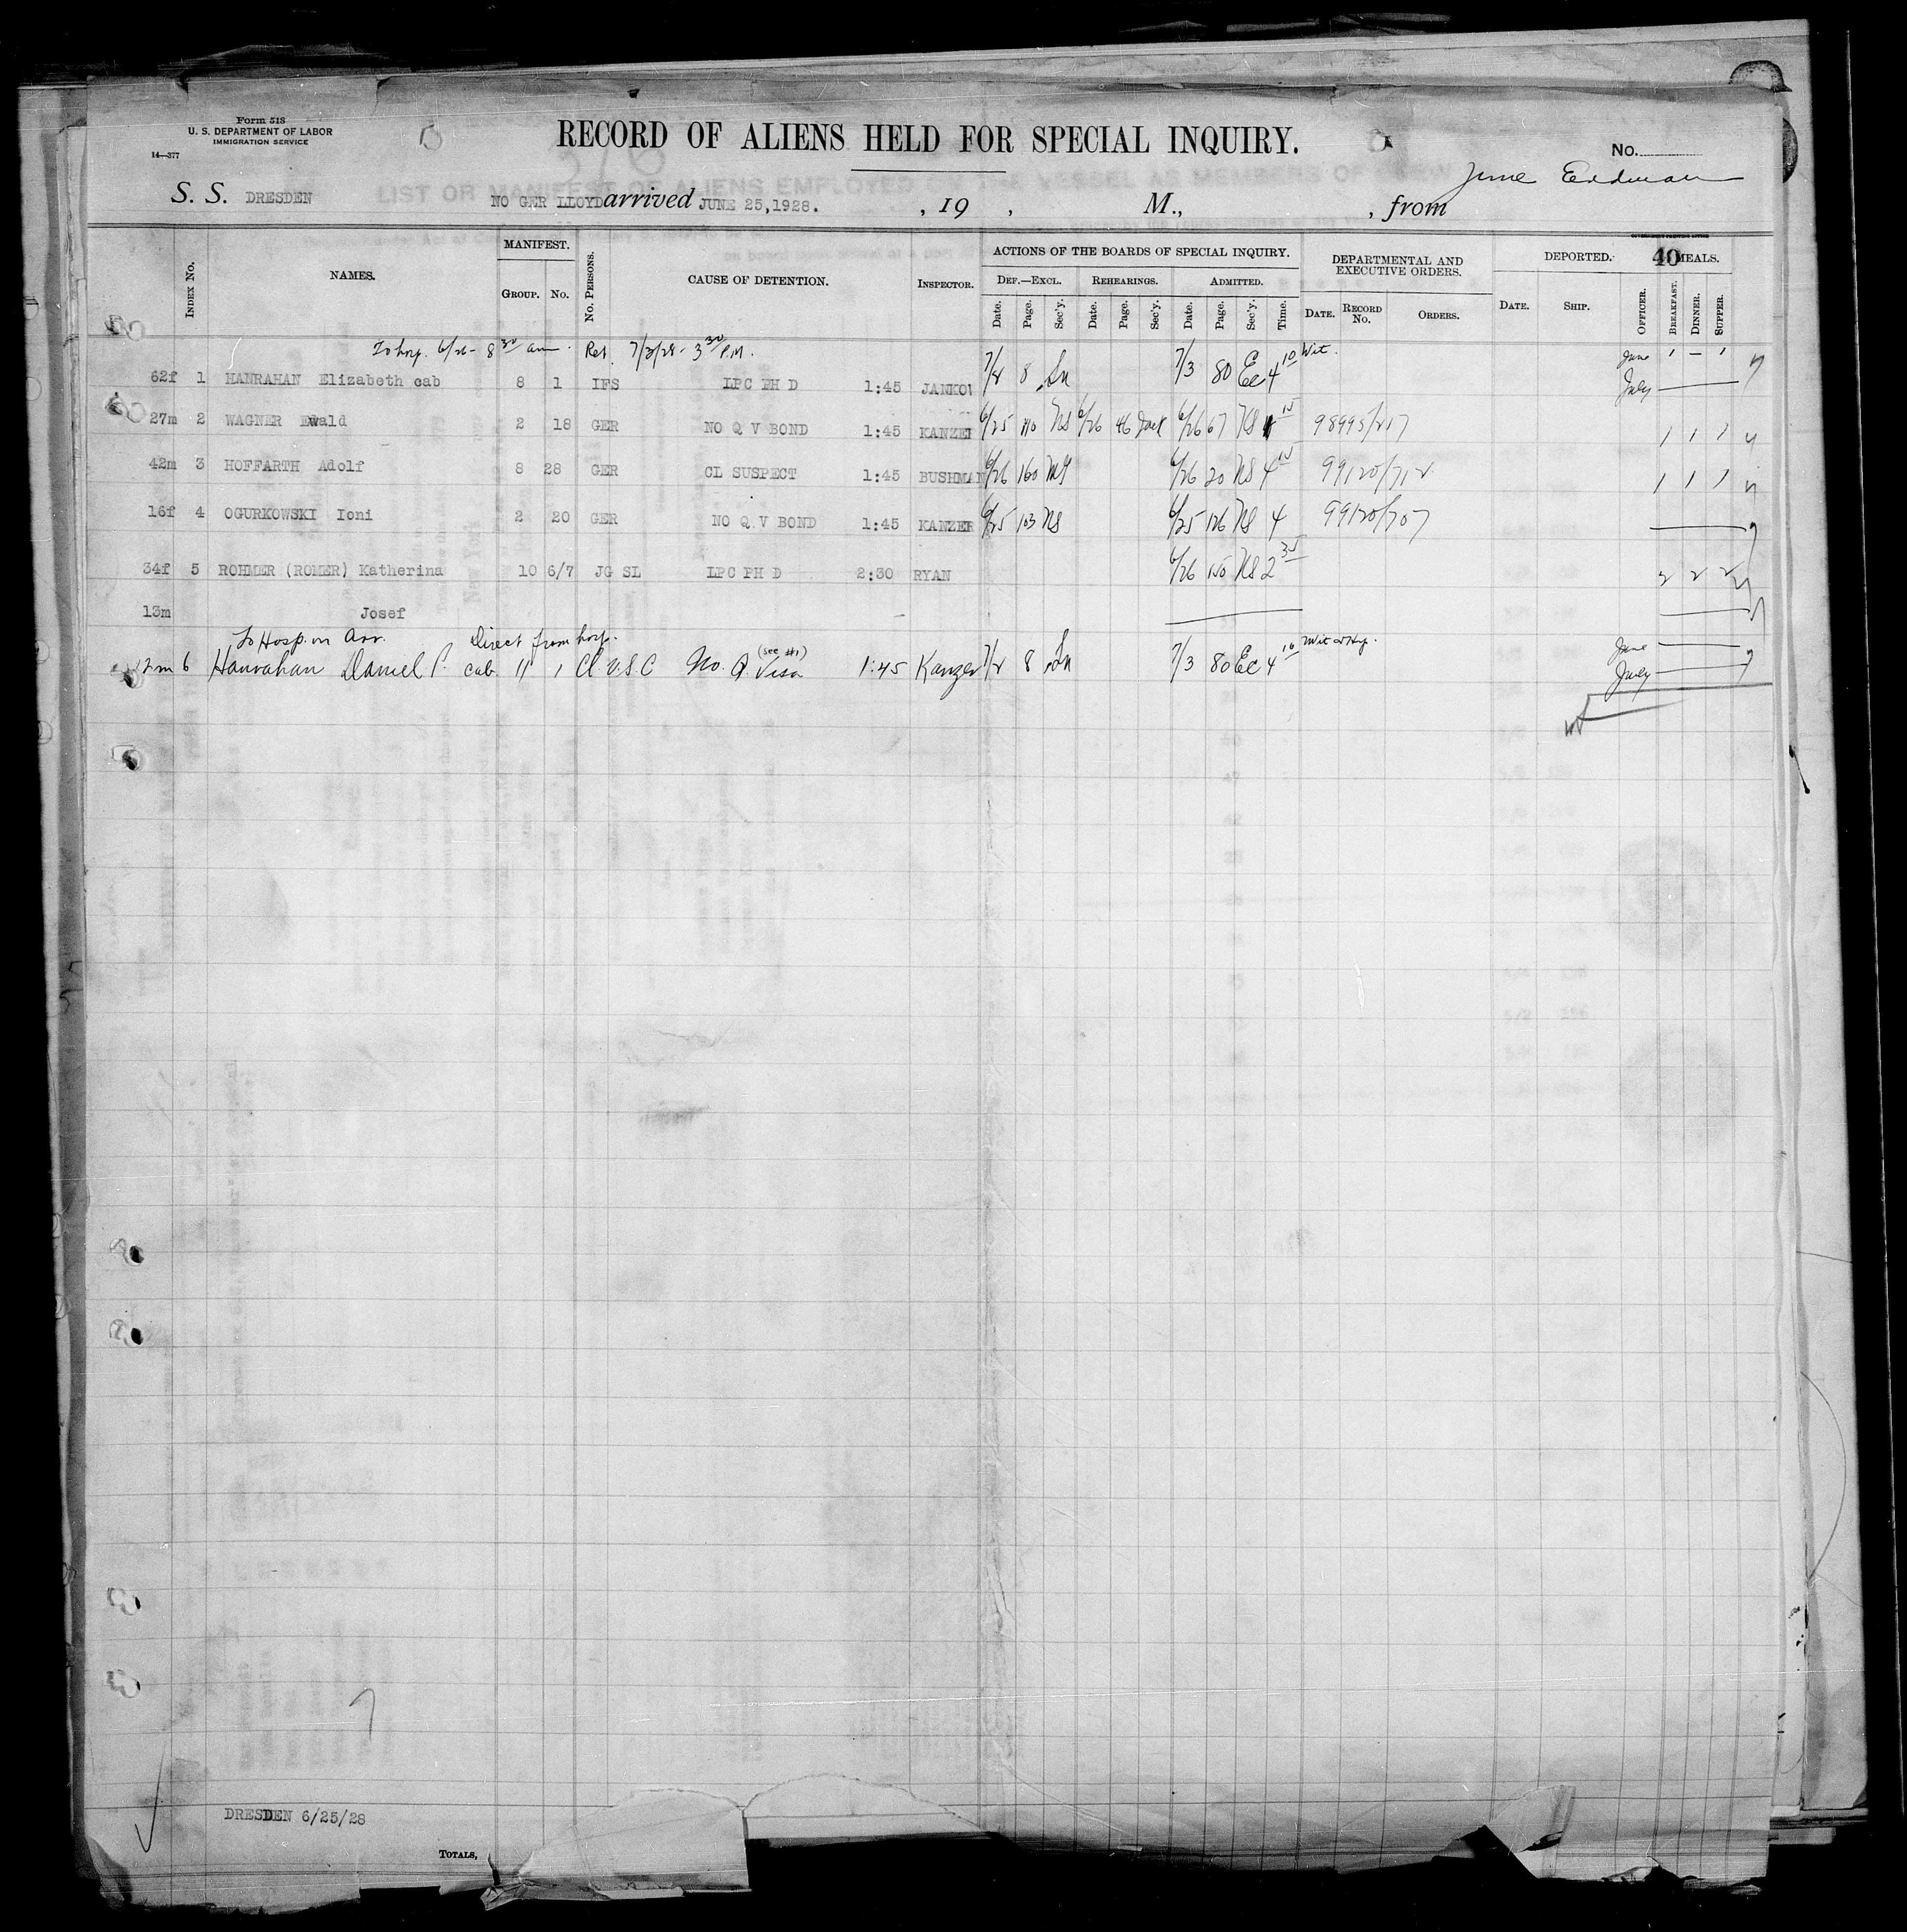 Form 518
U. S. DEPARTMENT OF LABOR
IMMIGRATION SERVICE
14—377
RECORD OF ALIENS HELD FOR SPECIAL INQUIRY.
No.
LIST OR MANIFEST OF ALIENS EMPLOYED ON THE VESSEL AS MEMBERS OF CREW
June Erdman
S. S. DRESDEN NO GER LLOYD arrived JUNE 25,1928. , 19 , M., , from
INDEX No. NAMES. MANIFEST. GROUP. No. No. PERSONS. CAUSE OF DETENTION. INSPECTOR. ACTIONS OF THE BOARDS OF SPECIAL INQUIRY. DEF.—EXCL. REHEARINGS. ADMITTED. Date. Page. Sec'y. Date. Page. Sec'y. Date. Page. Sec'y. Time. DEPARTMENTAL AND EXECUTIVE ORDERS. DATE. RECORD No. ORDERS. DEPORTED. DATE. SHIP. OFFICER. 40 MEALS. BREAKFAST. DINNER. SUPPER.
To hosp. 6/26 - 8 30 am. Rel. 7/2/28 - 3 30 P.M.
62f 1 HANRAHAN Elizabeth cab 8 1 IFS LPC PH D 1:45 JANKOW 7/2 8 7/3 80 Ec 4 10 Wit. June 1 - 1 July
27m 2 WAGNER Ewald 2 18 GER NO Q V BOND 1:45 KANZER 6/25 110 NS 6/26 46 6/26 67 NS 98995/217 1 1 1
42m 3 HOFFARTH Adolf 8 28 GER CL SUSPECT 1:45 BUSHMAN 6/26 160 6/26 20 NS 4 15 99120/712 1 1 1
16f 4 OGURKOWSKI Ioni 2 20 GER NO Q V BOND 1:45 KANZER 6/25 103 NS 6/25 126 NS 4 99120/707
34f 5 ROHMER (ROMER) Katherina 10 6/7 JG SL LPC PH D 2:30 RYAN 6/26 150 NS 2 35 2 2 2
13m Josef
To Hosp. on Arr. Direct from hosp.
12m 6 Hanrahan Daniel P. cab 11 1 Cl USC No. Q. Visa (see #1) 1:45 Kanzer 7/2 8 7/3 80 Ec 4 10 June July
DRESDEN 6/25/28
TOTALS,